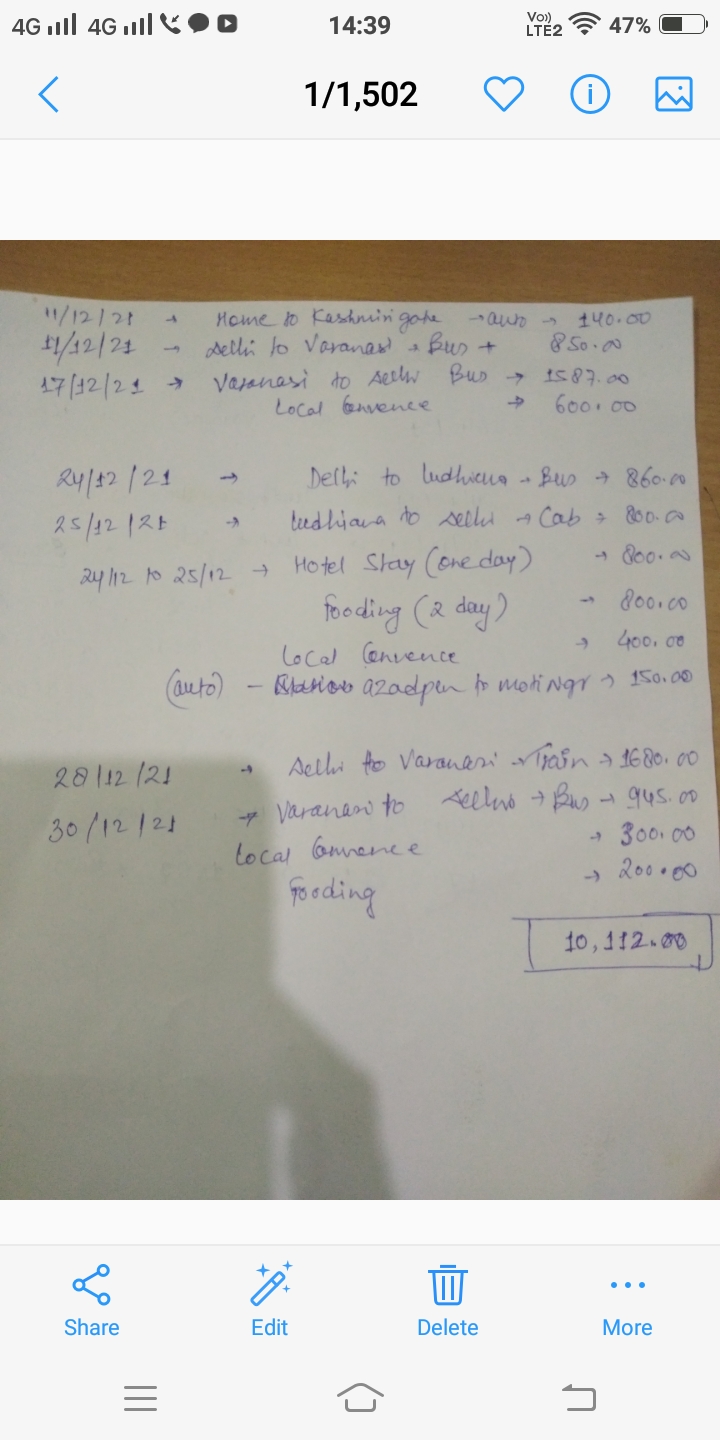 4G 4G 14:39 Vo)) LTE2 47%
1/1,502
11/12/21 → Home to Kashmiri gate → auto → 140.00
11/12/21 → Delhi to Varanasi → Bus → 850.00
17/12/21 → Varanasi to Delhi Bus → 1587.00
Local Convence → 600.00
24/12/21 → Delhi to ludhiana → Bus → 860.00
25/12/21 → ludhiana to Delhi → Cab → 800.00
24/12 to 25/12 → Hotel Stay (one day) → 800.00
Fooding (2 day) → 800.00
Local Convence → 400.00
(auto) – azadpur to moti Ngr → 150.00
28/12/21 → Delhi to Varanasi → Train → 1680.00
30/12/21 → Varanasi to Delhi → Bus → 945.00
Local Convence → 300.00
Fooding → 200.00
10,112.00
Share Edit Delete More